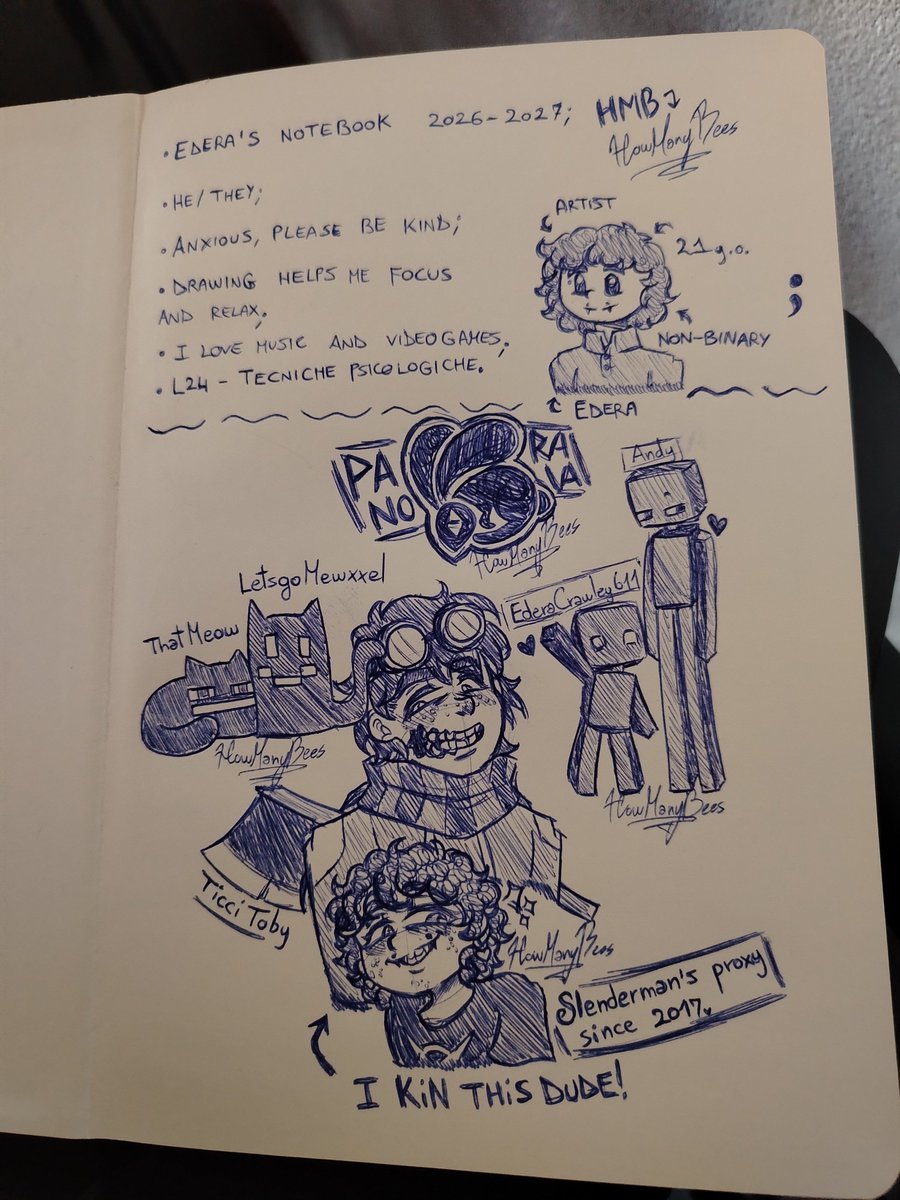 • EDERA'S NOTEBOOK 2026-2027;
HMB
HowManyBees
• HE/THEY;
• ANXIOUS, PLEASE BE KIND;
• DRAWING HELPS ME FOCUS
AND RELAX;
• I LOVE MUSIC AND VIDEOGAMES;
• L24 - TECNICHE PSICOLOGICHE.
ARTIST
21 y.o.
;
NON-BINARY
EDERA
PA
NO
RA
IA
HowManyBees
Andy
LetsgoMewxxel
ThatMeow
HowManyBees
EderaCrawley611
HowManyBees
Ticci Toby
HowManyBees
Slenderman's proxy
since 2017
I KiN THiS DUDE!